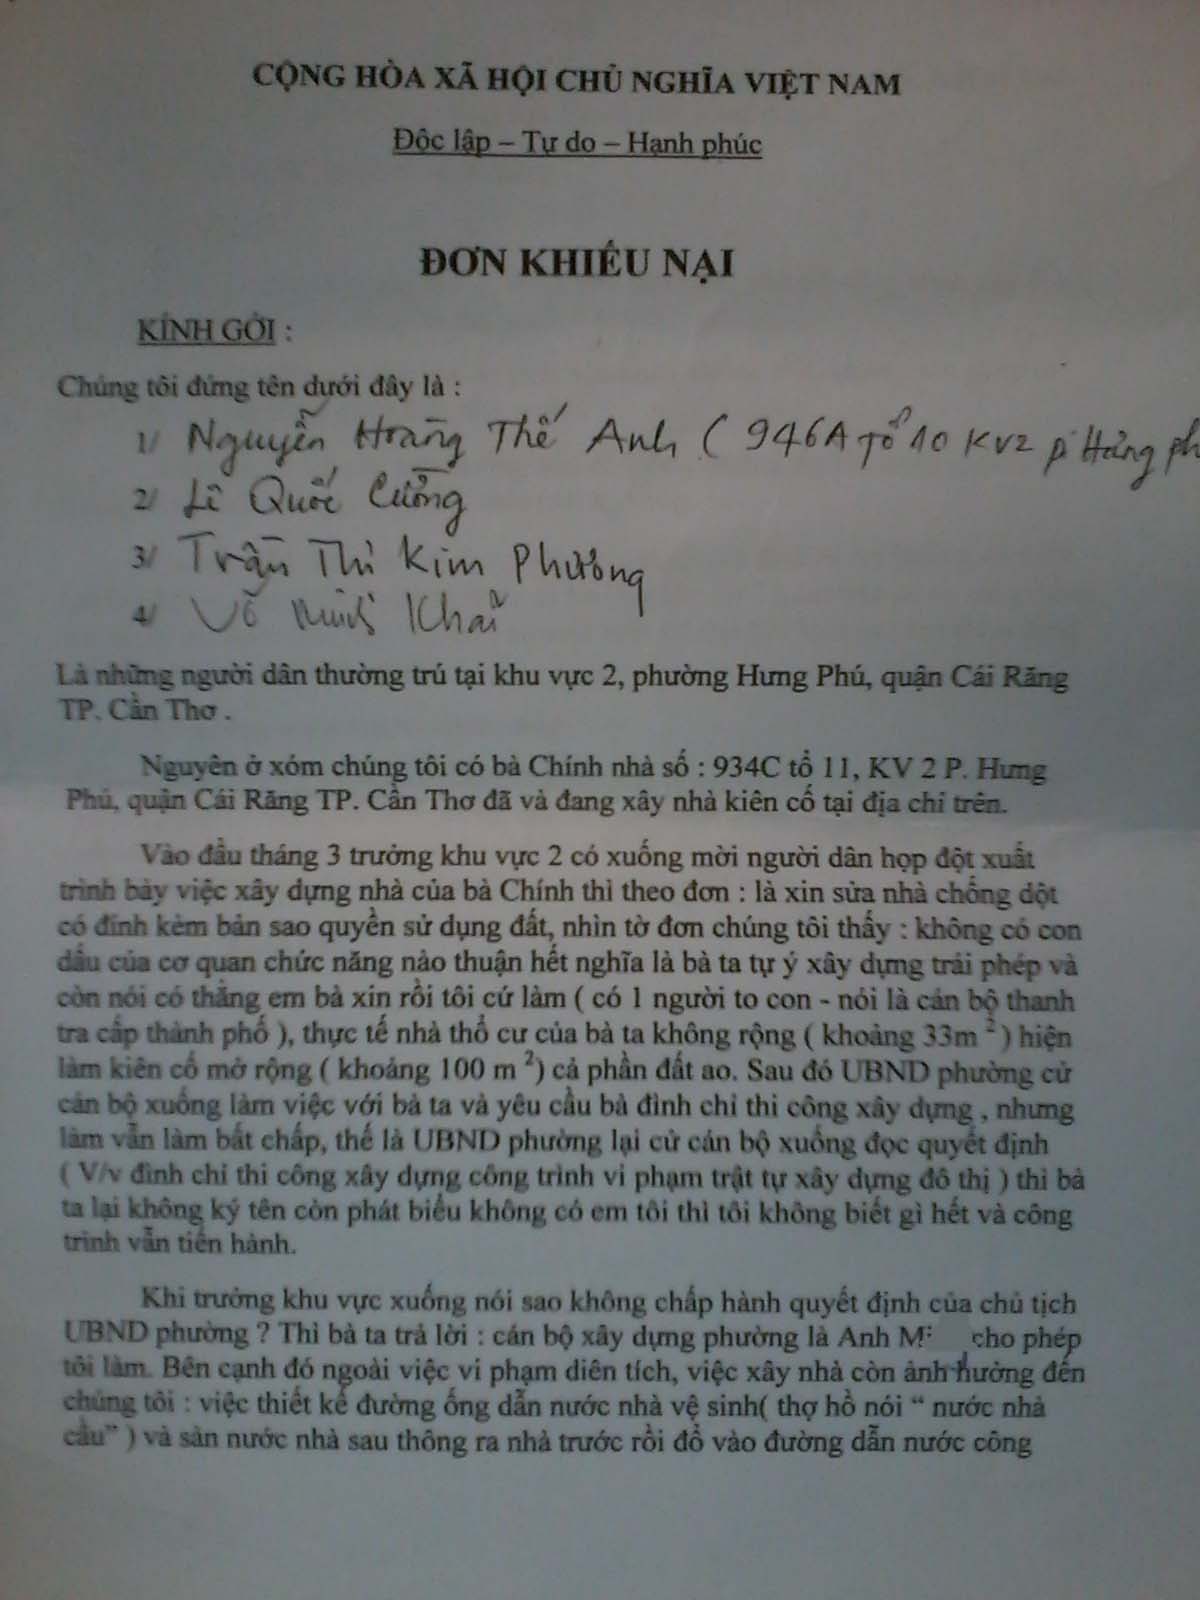 CỘNG HÒA XÃ HỘI CHỦ NGHĨA VIỆT NAM
Độc lập – Tự do – Hạnh phúc
ĐƠN KHIẾU NẠI
KÍNH GỞI :
Chúng tôi đứng tên dưới đây là :
1/ Nguyễn Hoàng Thế Anh ( 946A Tổ 10 KV2 p. Hưng ph
2/ Lê Quốc Cường
3/ Trần Thị Kim Phương
4/ Võ Minh Khai
Là những người dân thường trú tại khu vực 2, phường Hưng Phú, quận Cái Răng
TP. Cần Thơ .
Nguyên ở xóm chúng tôi có bà Chính nhà số : 934C tổ 11, KV 2 P. Hưng
Phú, quận Cái Răng TP. Cần Thơ đã và đang xây nhà kiên cố tại địa chỉ trên.
Vào đầu tháng 3 trưởng khu vực 2 có xuống mời người dân họp đột xuất
trình bày việc xây dựng nhà của bà Chính thì theo đơn : là xin sửa nhà chống dột
có đính kèm bản sao quyền sử dụng đất, nhìn tờ đơn chúng tôi thấy : không có con
dấu của cơ quan chức năng nào thuận hết nghĩa là bà ta tự ý xây dựng trái phép và
còn nói có thằng em bà xin rồi tôi cứ làm ( có 1 người to con - nói là cán bộ thanh
tra cấp thành phố ), thực tế nhà thổ cư của bà ta không rộng ( khoảng 33m ² ) hiện
làm kiên cố mở rộng ( khoảng 100 m ²) cả phần đất ao. Sau đó UBND phường cử
cán bộ xuống làm việc với bà ta và yêu cầu bà đình chỉ thi công xây dựng , nhưng
làm vẫn làm bất chấp, thế là UBND phường lại cử cán bộ xuống đọc quyết định
( V/v đình chỉ thi công xây dựng công trình vi phạm trật tự xây dựng đô thị ) thì bà
ta lại không ký tên còn phát biểu không có em tôi thì tôi không biết gì hết và công
trình vẫn tiến hành.
Khi trưởng khu vực xuống nói sao không chấp hành quyết định của chủ tịch
UBND phường ? Thì bà ta trả lời : cán bộ xây dựng phường là Anh M cho phép
tôi làm. Bên cạnh đó ngoài việc vi phạm diên tích, việc xây nhà còn ảnh hưởng đến
chúng tôi : việc thiết kế đường ống dẫn nước nhà vệ sinh( thợ hồ nói “ nước nhà
cầu” ) và sàn nước nhà sau thông ra nhà trước rồi đổ vào đường dẫn nước công